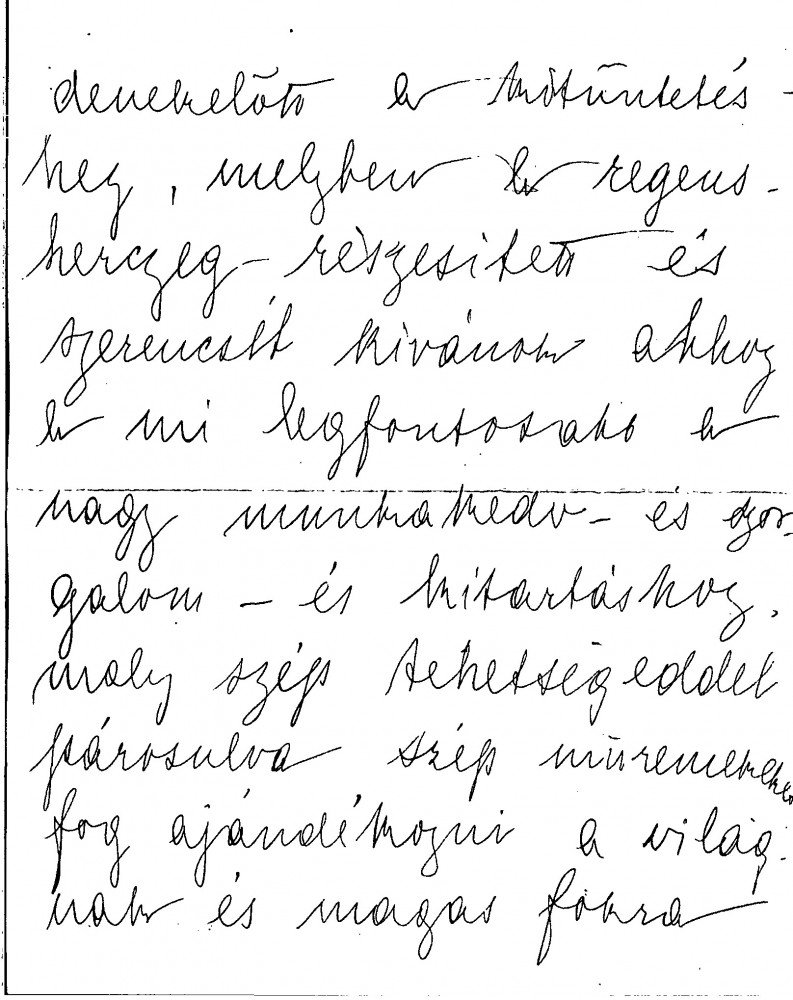 denekelőtt a kitüntetés-
hez, melyben a regens-
herczeg részesített és
szerencsét kivánok ahhoz
a mi legfontosabb a
nagy munkakedv- és szor-
galom- és kitartáshoz,
mely szép tehetségeddel
párosulva szép műremekeket
fog ajándékozni a világ-
nak és magas fokra